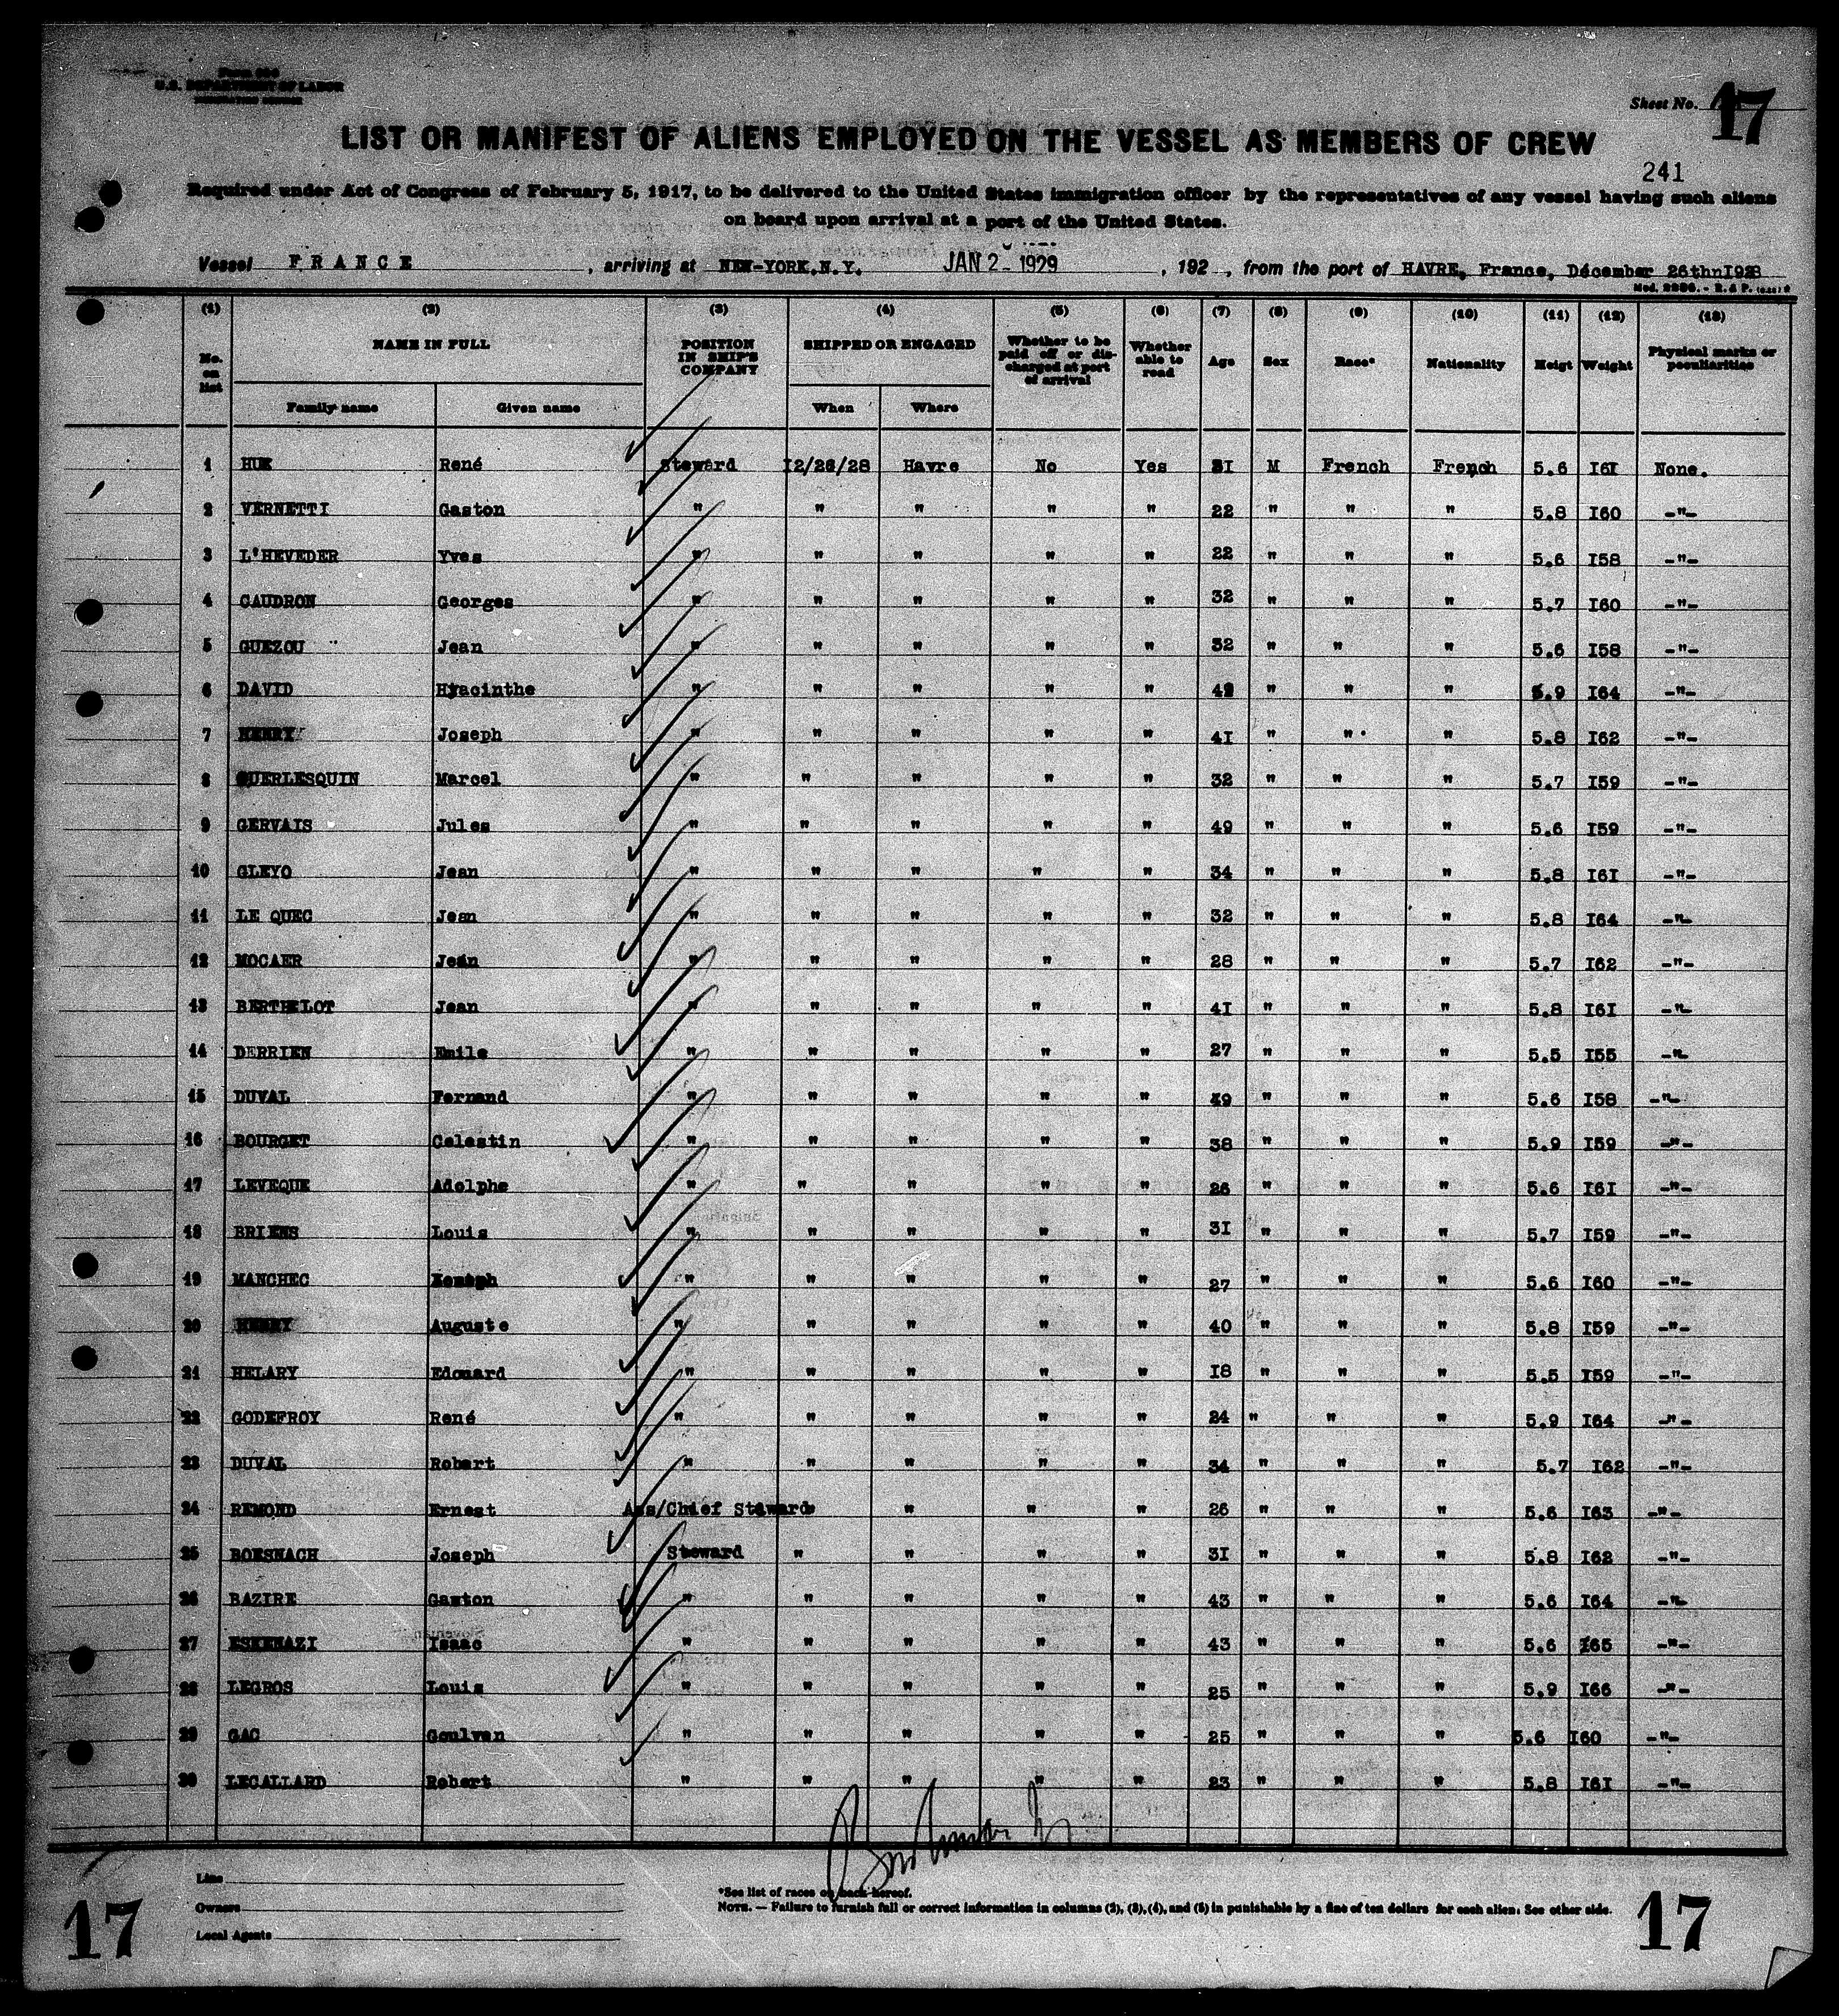 U.S. DEPARTMENT OF LABOR
Sheet No. 17
LIST OR MANIFEST OF ALIENS EMPLOYED ON THE VESSEL AS MEMBERS OF CREW
241
Required under Act of Congress of February 5, 1917, to be delivered to the United States immigration officer by the representatives of any vessel having such aliens
on board upon arrival at a port of the United States.
Vessel FRANCE, arriving at NEW-YORK.N.Y. JAN 2- 1929, 192 , from the port of HAVRE, France, Décember 26thnI928
(1) (2) (3) (4) (5) (6) (7) (8) (9) (10) (11) (12) (13)
No. on list NAME IN FULL POSITION IN SHIP'S COMPANY SHIPPED OR ENGAGED Whether to be paid off or discharged at port of arrival Whether able to read Age Sex Race* Nationality Heigt Weight Physical marks or peculiarities
Family name Given name When Where
1 HUE René Steward I2/26/28 Havre No Yes 3I M French French 5.6 I6I None.
2 VERNETTI Gaston " " " " " 22 " " " 5.8 I60 -"-
3 L'HEVEDER Yves " " " " " 22 " " " 5.6 I58 -"-
4 CAUDRON Georges " " " " " 32 " " " 5.7 I60 -"-
5 GUEZOU Jean " " " " " 32 " " " 5.6 I58 -"-
6 DAVID Hyacinthe " " " " " " " " 5.9 I64 -"-
7 HENRY Joseph " " " " " 4I " " " 5.8 I62 -"-
8 QUERLESQUIN Marcel " " " " " 32 " " " 5.7 I59 -"-
9 GERVAIS Jules " " " " " 49 " " " 5.6 I59 -"-
10 GLEYO Jean " " " " " 34 " " " 5.8 I6I -"-
11 LE QUEC Jean " " " " " 32 " " " 5.8 I64 -"-
12 MOCAER Jean " " " " " 28 " " " 5.7 I62 -"-
13 BERTHELOT Jean " " " " " 4I " " " 5.8 I6I -"-
14 DERRIEN Emile " " " " " 27 " " " 5.5 I55 -"-
15 DUVAL Fernand " " " " " " " " 5.6 I58 -"-
16 BOURGET Celestin " " " " " 38 " " " 5.9 I59 -"-
17 LEVEQUE Adolphe " " " " " 26 " " " 5.6 I6I -"-
18 BRIENS Louis " " " " " 3I " " " 5.7 I59 -"-
19 MANCHEC " " " " " 27 " " " 5.6 I60 -"-
20 HENRY Auguste " " " " " 40 " " " 5.8 I59 -"-
21 HELARY Edouard " " " " " I8 " " " 5.5 I59 -"-
22 GODEFROY René " " " " " 24 " " " 5.9 I64 -"-
23 DUVAL Robert " " " " " 34 " " " 5.7 I62 -"-
24 REMOND Ernest Ass/Chief Steward " " " " 26 " " " 5.6 I63 -"-
25 BOESNACH Joseph Steward " " " " 3I " " " 5.8 I62 -"-
26 BAZIRE Gaston " " " " " 43 " " " 5.6 I64 -"-
27 ESKENAZI Isaac " " " " " 43 " " " 5.6 I65 -"-
28 LEGROS Louis " " " " " 25 " " " 5.9 I66 -"-
29 GAC Goulven " " " " " 25 " " " 5.6 I60 -"-
30 LECALLARD Robert " " " " " 23 " " " 5.8 I6I -"-
Line
Owners
Local Agents
*See list of races on back hereof.
NOTE. — Failure to furnish full or correct information in columns (2), (3), (4), and (5) in punishable by a fine of ten dollars for each alien. See other side.
17
17